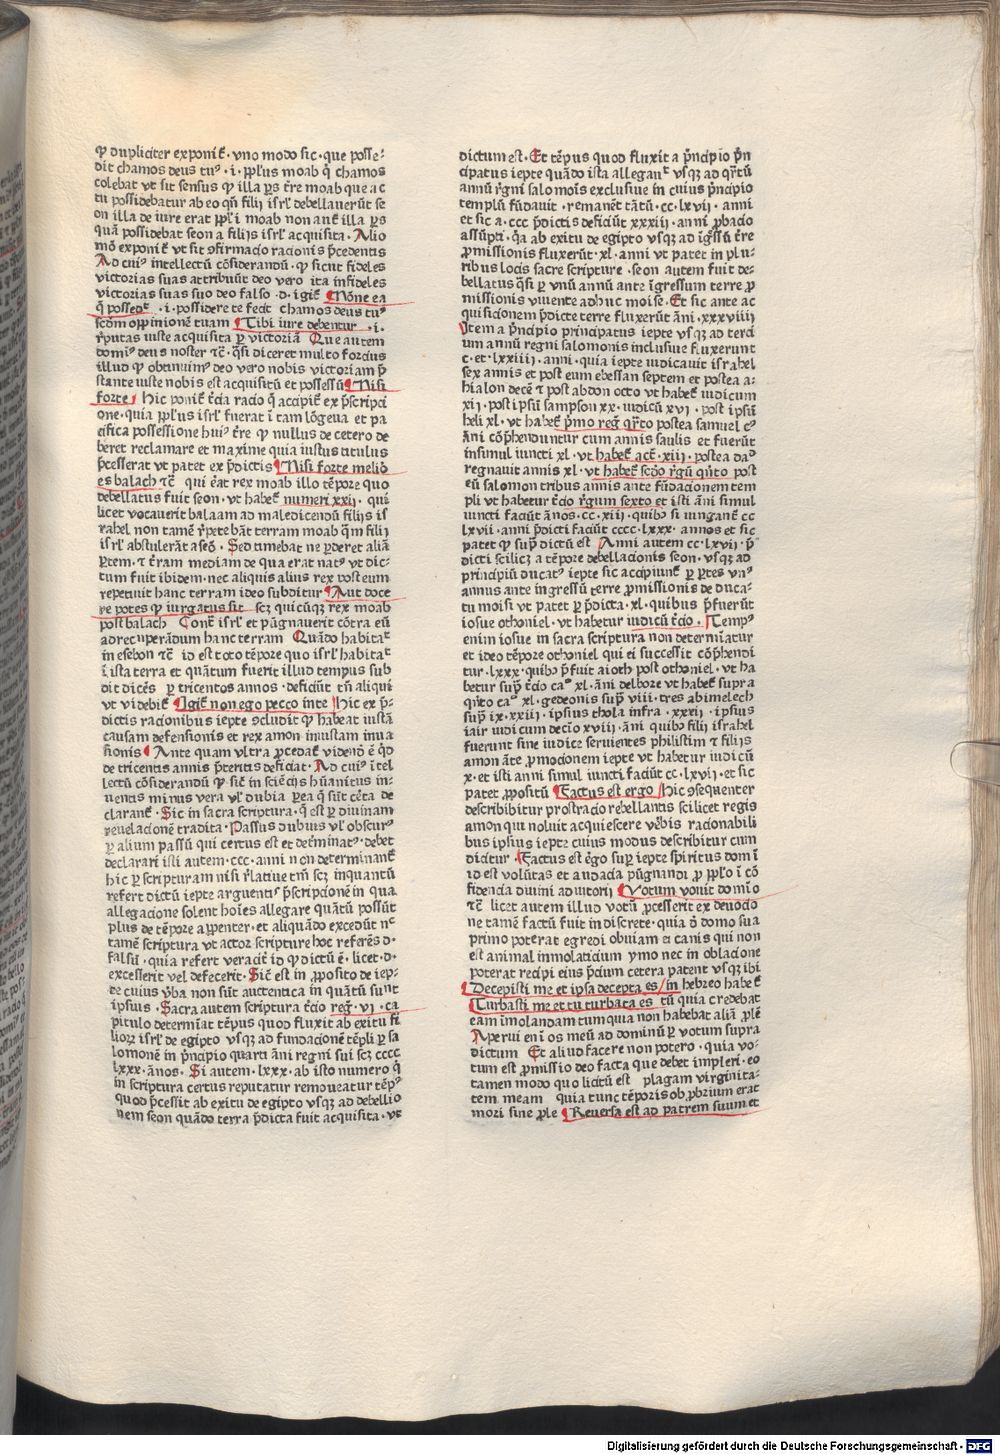 ꝙ dupliciter exponit᷒ · vno modo sic · que posse⸗
dit chamos deus tuꝰ · i · ꝓplus moab q̇ chamos
colebat vt sit sensus ꝙ illa ꝑs t̄re moab que a c
tu possidebatur ab eo qn̄ filij isrł debellauerūt se
on illa de iure erat ꝓpl̄i moab non aut̄ illa ꝑs
quā possidebat seon a filijs isrł acquisita · Alio
mō exponit᷒ vt sit ɔfirmacio racionis p̄cedentis
Ad cuiꝰ intellectū cōsiderandū · ꝙ sicut fideles
victorias suas attribuūt deo vero ita infideles
victorias suas suo deo falso · d · igit᷒ Nōne ea
q̄ possedꝫ · i · possidere te fecit chamos deus tuꝰ
scd̄m oppinionē tuam Tibi iure debentur · i ·
r̄putas iuste acquisita ꝑ victoriā Que autem
domiꝰ deus noster ⁊c̄ · q̄si diceret multo forcius
illud ꝙ obtinuimꝰ deo vero nobis victoriam p̄
stante iuste nobis est acquisitū et possessū Nisi
forte Hic ponit᷒ t̄cia racio q̄ accipit᷒ ex p̄scripci
one · quia ꝓplꝰus isrł fuerat ī tam lōgeua et pa
cifica possessione huiꝰ t̄re ꝙ nullus de cetero de
beret reclamare et maxime quia iustus titulus
p̄cesserat vt patet ex p̄dictis Nisi forte meliō
es balach ⁊c̄ qui ēat rex moab illo tēpore quo
debellatus fuit seon · vt habet᷒ numeri xxij · qui
licet vocauerit balaam ad maledicendū filijs is
rahel non tamē r̄pete bāt terram moab q̄m filij
isrł abstulerāt a seō · Sed timebat ne ꝑderet aliā
ꝑtem · ⁊ t̄ram mediam de qua erat natꝰ vt dic⸗
tum fuit ibidem · nec aliquis alius rex post eum
repetiuit hanc terram ideo subditur Aut doce
re potes ꝙ iurgatus sit scꝫ qui cūqꝫ rex moab
post balach Contͣ isrł et pūgnauerit cōtra eū
ad recuperāndum hanc terram Quādo habitat᷒
in esebon ⁊c̄ id est toto tēpore quo isrł habitat᷒
ī ista terra et quātum fuerit illud tempus sub
dit dicēs ꝑ tricentos annos · deficiūt tn̄ aliqui
vt videbit᷒ Igit᷒ non ego pecco in te Hic ex p̄⸗
dictis racionibus iepte ɔcludit ꝙ habeat iustā
causam defensionis et rex amon iniustam inua
sionis Ante quam vltra ꝓcedat᷒ videnō ē q̇d
de tricentis annis p̄teritis deficiat · Ad cuiꝰ ītel
lectū cōsiderandū ꝙ · sict̄ in sciēcijs hūanitus in⸗
uentis minus vera vł dubia ꝑea q̄ sūt c̄ta de
clarant᷒ · Sic in sacra scriptura · q̄ est ꝑ diuinam
reuelacionē tradita · Passus dubius vł obscurꝰ
ꝑ alium passū qui certus est et det̄minatꝰ · debet
declarari isti autem · ccc · anni non determinant᷒
hic ꝑ scripturam nisi r̄latiue tm̄ scꝫ inquantū
refert dictū iepte arguentꝭ p̄scripcionē in qua
allegacione solent hoīes allegare quātū possūt
plus de tēpore appenter · et aliquādo excedūt nͨ
tamē scriptura vt actor scripture hoc referēs d·
falsū · quia refert veracit̄ id ꝙ dictū ē · licet · d·
excesserit vel defecerit · Sic̄ est in ꝓposito de iep⸗
te cuius v̄ba non sūt auctentica in quātū sunt
ipsius · Sacra autem scriptura t̄cio reg᷒ · vi · ca
pitulo determīat tēpus quod fluxit ab exitu fi
lioꝝ isrł de egipto vsqꝫ ad fundacionē tēpli ꝑ sa
lomonē in p̄ncipio quarti āni regni sui scꝫ cccc
lxxx · ānos · Si autem · lxxx · ab isto numero q̇
in scriptura certus reputatur remoueatur tēpꝰ
quod p̄cessit ab exitu de egipto vsqꝫ ad debellio
nem seon quādo terra p̄dicta fuit acquisita · vt
dictum est · Et tēpus quod fluxit a p̄ncipio p̄n
cipatus iepte quādo ista allegant᷒ vsqꝫ ad qrͣtū
annū r̄gni salomōis exclusiue in cuius p̄ncipio
templū fūdauit · remanēt tātū · cc · lxvij · anni
et sic a · ccc p̄dictis deficiūt xxxiij · anni ꝓbacio
assūpti · q̄a ab exitu de egipto vsqꝫ ad īg̃ssū t̄re
ꝓmissionis fluxerūt · xl · anni vt patet in plu⸗
ribus locis sacre scripture · seon autem fuit de⸗
bellatus q̄si ꝑ vnū annū ante īgressum terre ꝓ
missionis viuente adhuc moise · Et sic ante ac
quisicionem p̄dicte terre fluxerūt āni · xxxviiij
Item a p̄ncipio principatus iepte vsqꝫ ad terci
um annū regni salomonis inclusiue fluxerunt
c · et · lxxiiij · anni · quia iepte iudicauit israhel
sex annis et post eum ebessan septem et postea a⸗
hialon decē ⁊ post abdon octo vt habet᷒ iudicum
xij · post ipsū sampson xx · iudicū xvi · post ipsū
heli xl · vt habet᷒ p̄mo reg᷒ qrͣto postea samuel cꝰ
āni cōp̄henduntur cum annis saulis et fuerūt
insimul iuncti xl · vt habet᷒ act᷒ · xiij · postea daͩ
regnauit annis xl · vt habet᷒ scd̄o r̄gū qn̄to post
eū salomon tribus annis ante fūdacionem tem
pli vt habetur t̄cio r̄gum sexto et isti āni simul
iuncti faciūt ānos · cc · xiij · quibꝰ si iungant᷒ cc
lxvij · anni p̄dicti faciūt cccc · lxxx · annos et sic
patet ꝙ sup̄ dictū est Anni autem cc · lxvij · p̄
dicti scilicꝫ a tēpore debellacionis seon · vsqꝫ ad
principiū ducatꝰ iepte sic accipiunt᷒ ꝑ ꝑtes vnꝰ
annus ante ingressū terre ꝓmissionis de duca⸗
tu moisi vt patet ꝑ p̄dicta · xl · quibus p̄fuerūt
iosue othoniel · vt habetur iudicū t̄cio · Tempꝰ
enim iosue in sacra scriptura non determīatur
et ideo tēpore othoniel qui ei successit cōp̄hendi
tur · lxxx · quibꝰ p̄fuit aioth post othoniel · vt ha
betur supͣ t̄cio caͦ xl · āni delbore vt habet᷒ supra
qn̄to caͦ xl · gedeonis supͣ viij · tres abimelech
supͣ ix · xxiij · ipsius thola infra · xxxi · ipsius
iair iudicum decīo xviij · āni quibꝰ filij israhel
fuerunt sine iudice seruientes philistim ⁊ filijs
amon āte ꝓmocionem iepte vt habetur iudicū
x · et isti anni simul iuncti faciūt cc · lxvij · et sic
patet ꝓpositū Factus est ergo Hic ɔsequenter
describitur prostracio rebellantis scilicet regis
amon qui noluit acquiescere verbis racionabili
bus ipsius iepte cuius modus describitur cum
dicitur · Factus est ēgo suꝑ iepte spiritus dom ī
id est volūtas et audacia pūgnandi ꝓ ꝓpl̄o ī cō
fidencia diuini adiutorij Votum vouit domīo
⁊c̄ licet autem illud votū ꝓcesserit ex deuocio
ne tamē factū fuit in discrete · quia ō domo sua
primo poterat egredi obuiam ei canis qui non
est animal immolaticium ymo nec in oblacione
poterat recipi eius p̄cium cetera patent vsqꝫ ibi
Decepisti me et ipsa decepta es in hebreo habet᷒
Turbasti me et tu turbata es tū quia credebat
eam īmolandam tum quia non habebat aliā ꝓlē
Aperui enī os meū ad dominū ꝑ votum supra
dictum Et aliud facere non potero · quia vo⸗
tum est ꝓmissio deo facta que debet impleri · eo
tamen modo quo licitū est plagam virginita⸗
tem meam quia tunc tēporis ob ꝓbrium erat
mori sine ꝓle Reuersa est ad patrem suum et
Digitalisierung gefördert durch die Deutsche Forschungsgemeinschaft - DFG